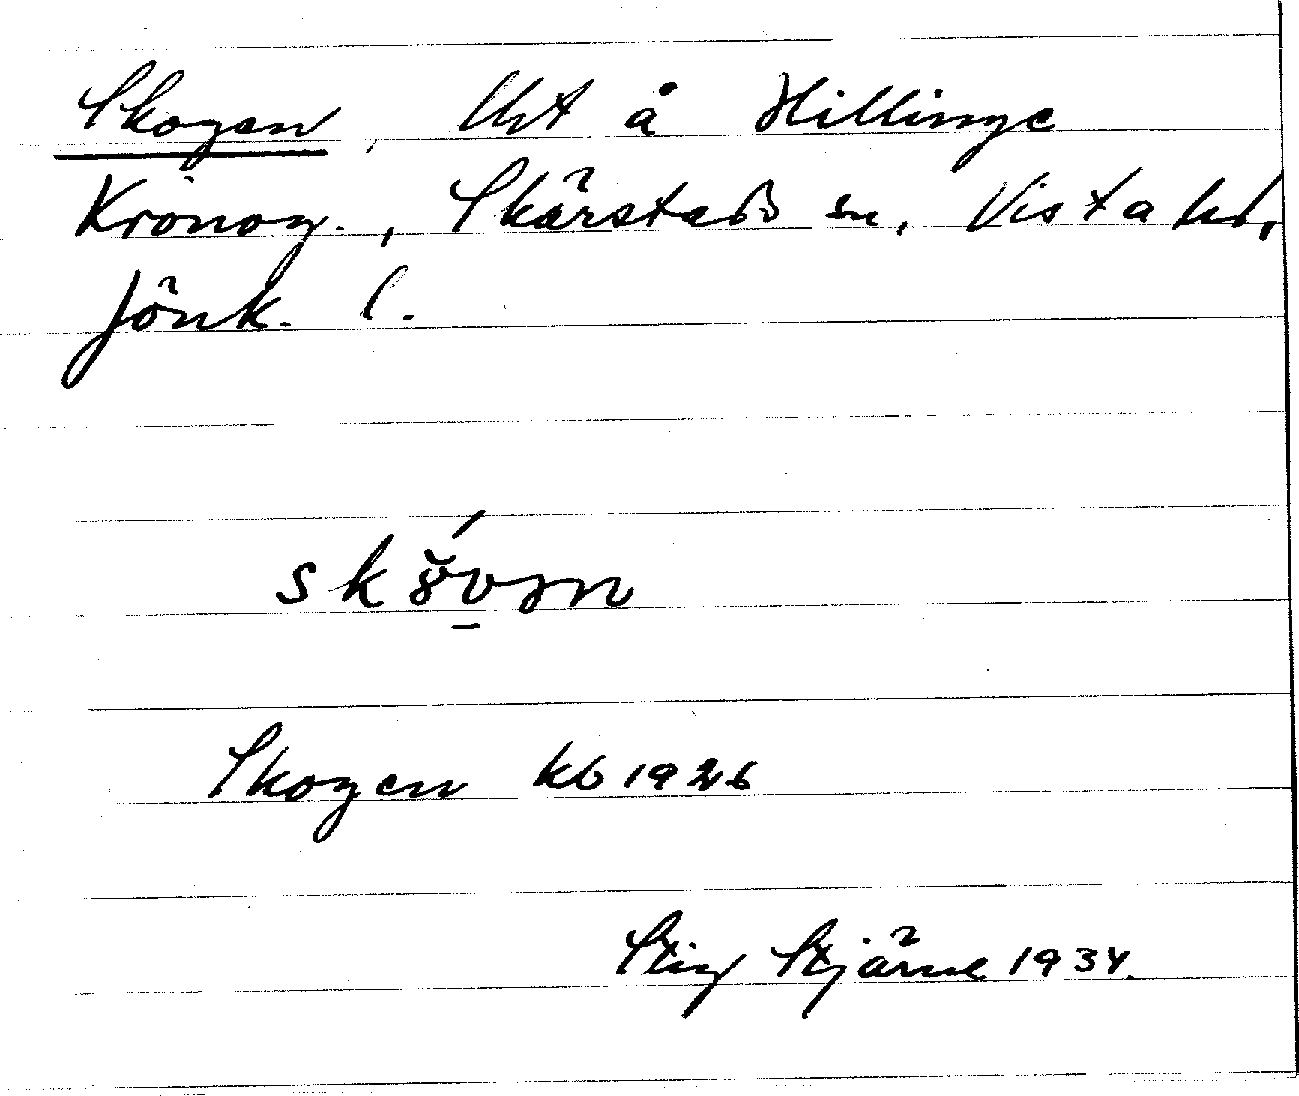 Skogen, lht å Hillinge
Kronog., Skärstads sn, Vista hd,
Jönk. l.
Skogen kb 1926
Stig Stjärne 1934.